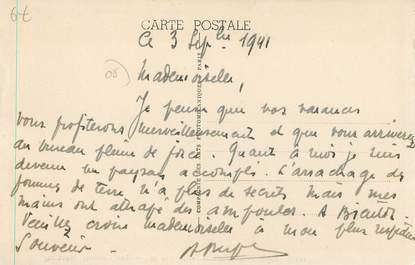 CARTE POSTALE
Ce 3 Sept bre 1941
Mademoiselle,
Je pense que vos vacances
vous profiterons merveilleusement et que vous arriverez
au bureau pleine de force. Quant à moi je suis
devenu un paysan accompli. L'arrachage de
pommes de terre n'a plus de secrets mais mes
mains ont attrapé des ampoules. A Bientôt.
Veuillez croire mademoiselle à mon plus
Souvenir
COMPAGNIE DES ARTS PHOTOMÉCANIQUES